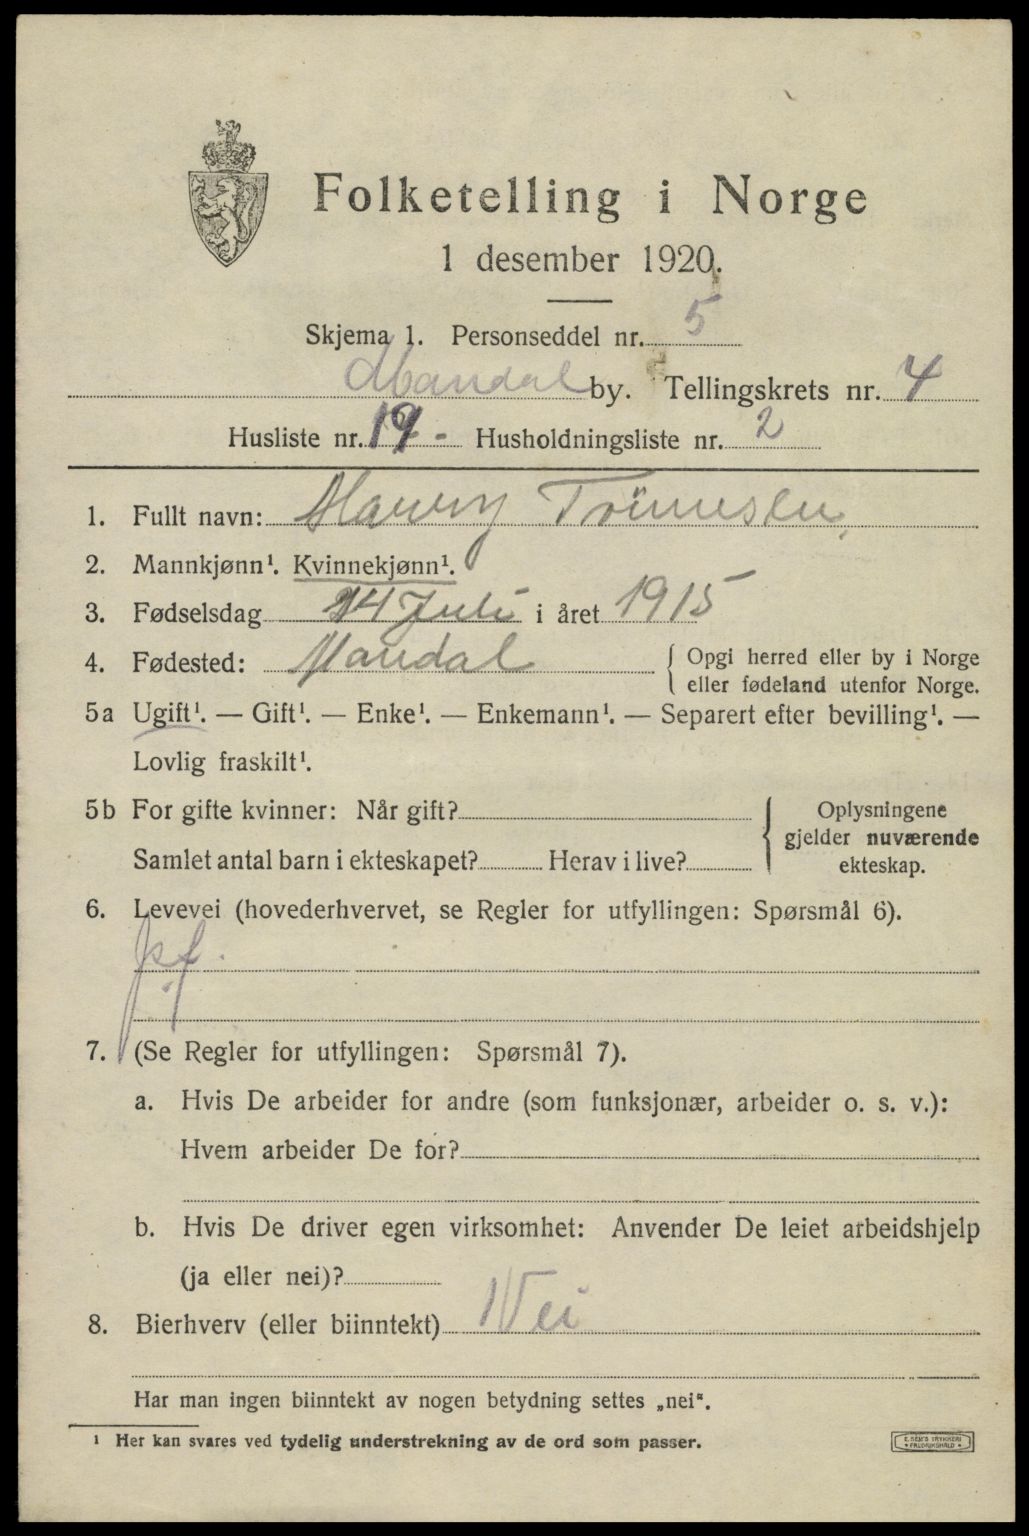 Folketelling i Norge
1 desember 1920.
Skjema 1. Personseddel nr. 5
Mandal by. Tellingskrets nr. 4
Husliste nr. 19 - Husholdningsliste nr. 2
1. Fullt navn:
2. Mannkjønn¹. Kvinnekjønn¹.
3. Fødselsdag 14 Juli i året 1915
4. Fødested: Mandal { Opgi herred eller by i Norge
eller fødeland utenfor Norge.
5a Ugift¹. — Gift¹. — Enke¹. — Enkemann¹. — Separert efter bevilling¹. —
Lovlig fraskilt¹.
5b For gifte kvinner: Når gift?
Samlet antal barn i ekteskapet? Herav i live?
Oplysningene
gjelder nuværende
ekteskap.
6. Levevei (hovederhvervet, se Regler for utfyllingen: Spørsmål 6).
7. (Se Regler for utfyllingen: Spørsmål 7).
a. Hvis De arbeider for andre (som funksjonær, arbeider o. s. v.):
Hvem arbeider De for?
b. Hvis De driver egen virksomhet: Anvender De leiet arbeidshjelp
(ja eller nei)?
8. Bierhverv (eller biinntekt) Nei
Har man ingen biinntekt av nogen betydning settes „nei“.
¹ Her kan svares ved tydelig understrekning av de ord som passer.
E. SEM'S TRYKKERI
FREDRIKSHALD